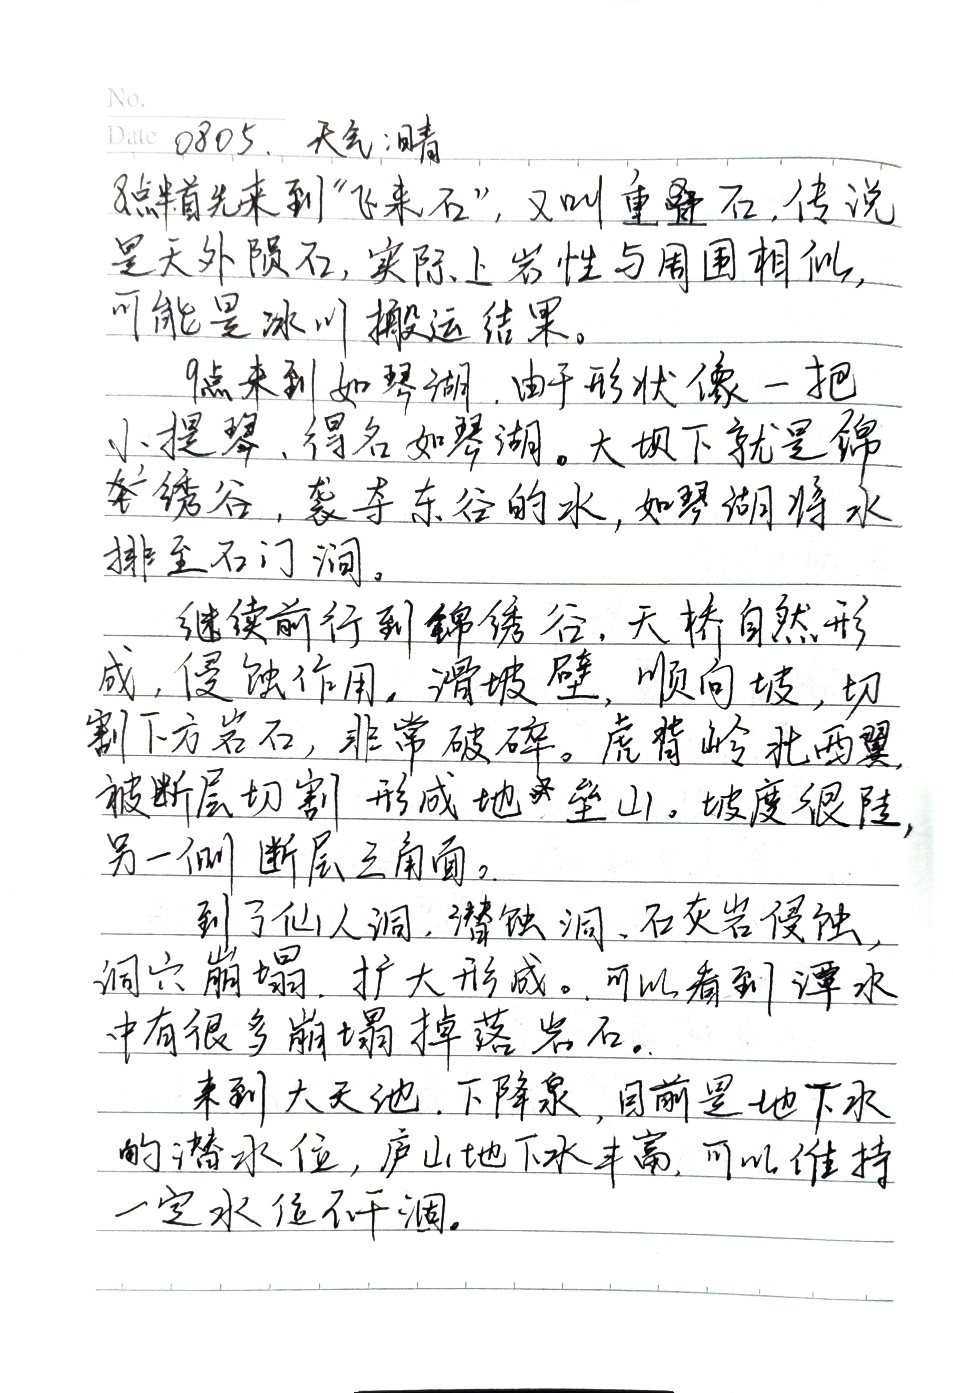 No.
Date 0805. 天气:晴
8点半首先来到“飞来石”,又叫重叠石,传说
是天外陨石,实际上岩性与周围相似,
可能是冰川搬运结果。
9点来到如琴湖,由于形状像一把
小提琴、得名如琴湖。大坝下就是锦
绣谷,袭夺东谷的水,如琴湖将水
排至石门涧。
继续前行到锦绣谷,天桥自然形
成,侵蚀作用。滑坡壁,顺向坡,切
割下方岩石,非常破碎。虎背岭北西翼,
被断层切割 形成地垒山。坡度很陡,
另一侧断层三角面。
到了仙人洞,潜蚀洞、石灰岩侵蚀,
洞穴崩塌,扩大形成。可以看到潭水
中有很多崩塌掉落岩石。
来到大天池,下降泉,目前是地下水
的潜水位,庐山地下水丰富,可以维持
一定水位不干涸。